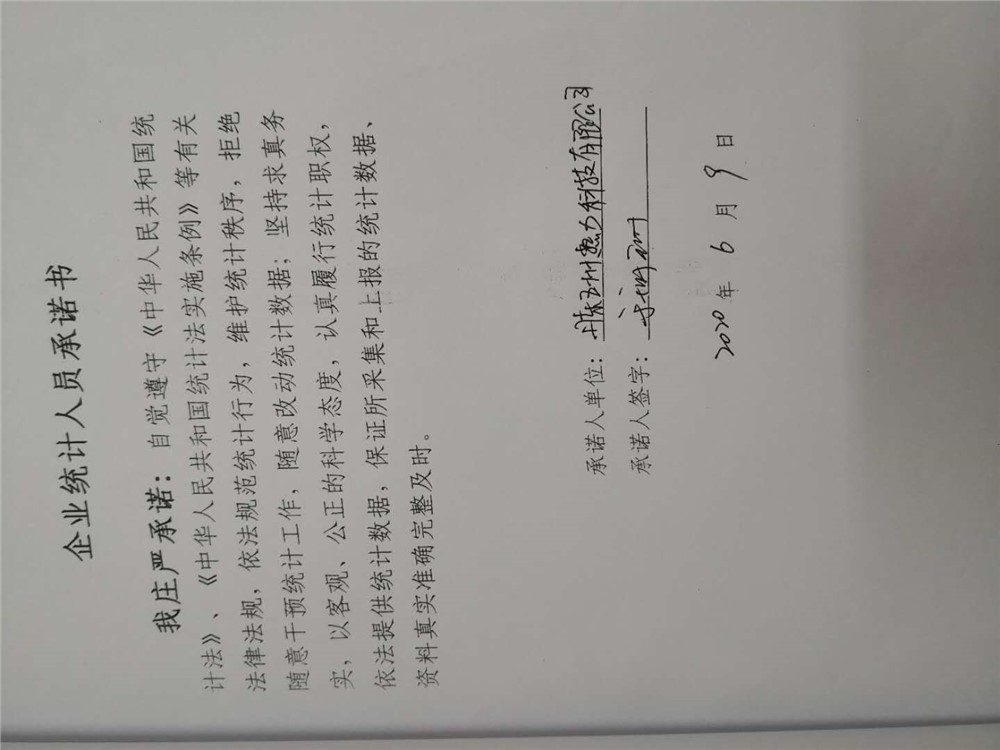 企业统计人员承诺书
我庄严承诺：自觉遵守《中华人民共和国统
计法》、《中华人民共和国统计法实施条例》等有关
法律法规，依法规范统计行为，维护统计秩序，拒绝
随意干预统计工作，随意改动统计数据；坚持求真务
实，以客观、公正的科学态度，认真履行统计职权，
依法提供统计数据，保证所采集和上报的统计数据、
资料真实准确完整及时。
承诺人单位：五州热力科技有限公司
承诺人签字：
2020年6月9日